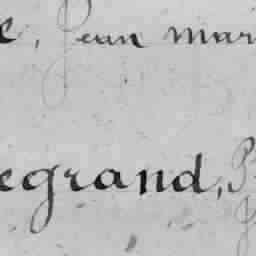 e, Jean mar
egrand, P